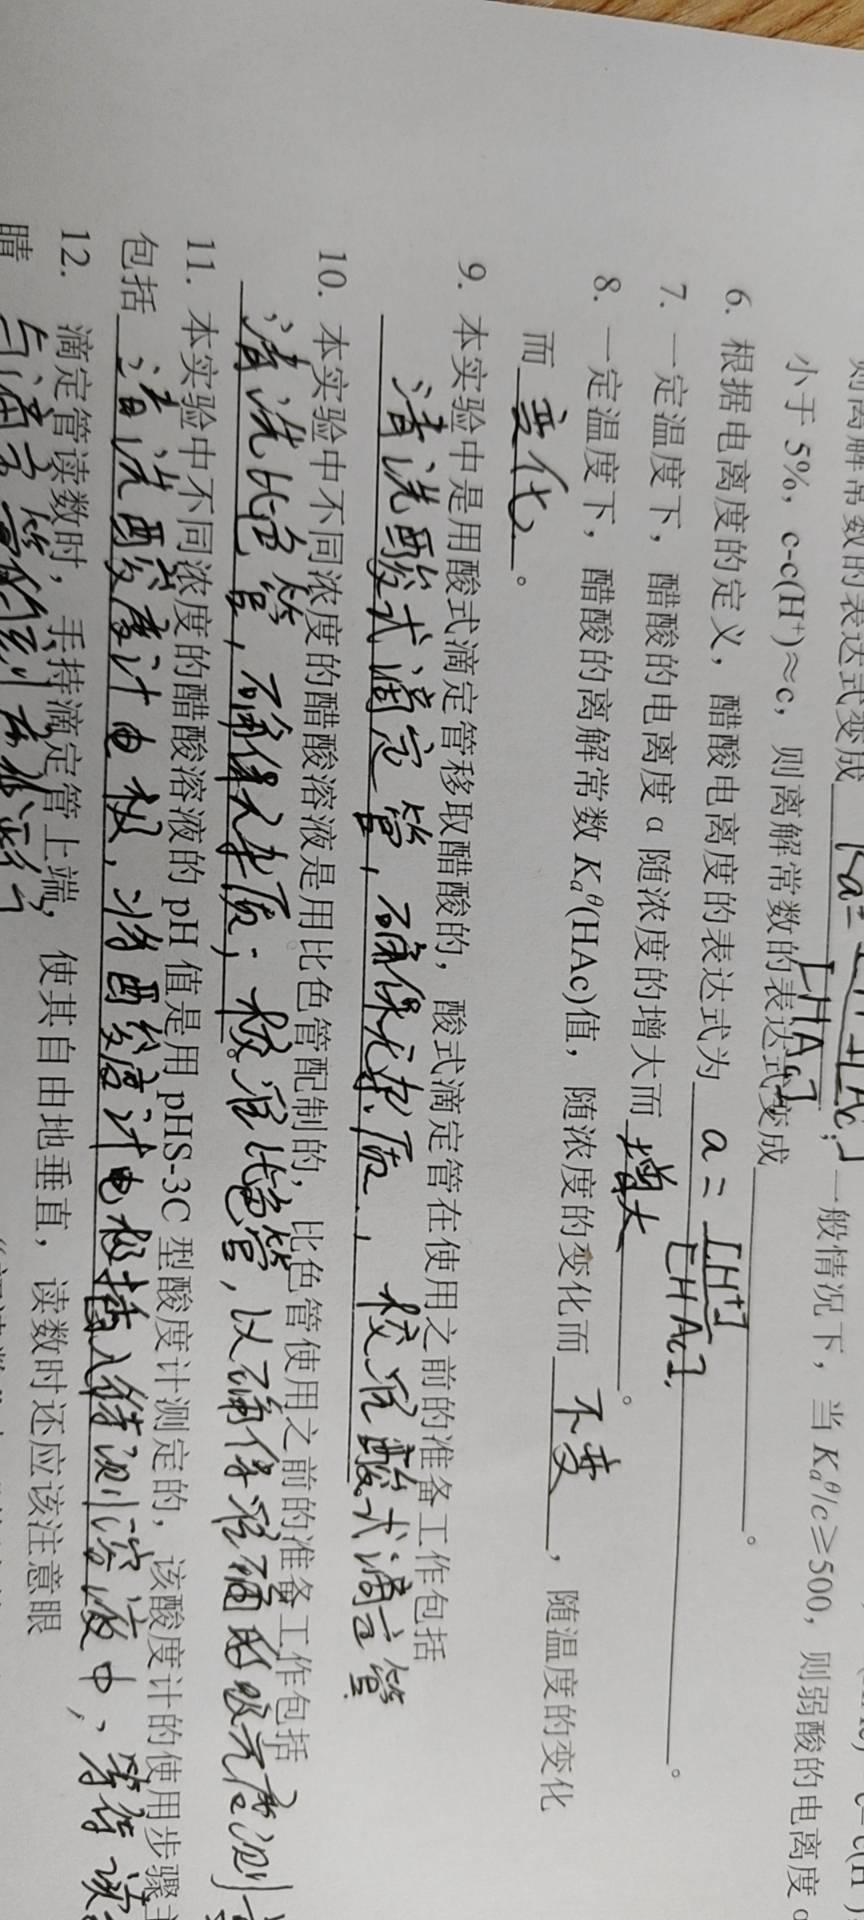 则离解常数的表达式变成 Ka=
[HAc] ; 一般情况下，当 Kaθ/c≥500，则弱酸的电离度 α
小于 5%，c-c(H⁺)≈c，则离解常数的表达式变成 。
6. 根据电离度的定义，醋酸电离度的表达式为 a = [H⁺]/[HAc]. 。
7. 一定温度下，醋酸的电离度 α 随浓度的增大而 增大 。
8. 一定温度下，醋酸的离解常数 Kaθ(HAc)值，随浓度的变化而 不变 ，随温度的变化
而 变化 。
9. 本实验中是用酸式滴定管移取醋酸的，酸式滴定管在使用之前的准备工作包括
清洗酸式滴定管，确保无杂质.，校准酸式滴定管.
10. 本实验中不同浓度的醋酸溶液是用比色管配制的，比色管使用之前的准备工作包括
清洗比色管，确保无杂质；校准比色管，以确保准确的吸光度测 。
11. 本实验中不同浓度的醋酸溶液的 pH 值是用 pHS-3C 型酸度计测定的，该酸度计的使用步骤主
包括 清洗酸度计电极，将酸度计电极插入待测溶液中，等待读
12. 滴定管读数时，手持滴定管上端，使其自由地垂直，读数时还应该注意眼
睛 与滴定管的刻